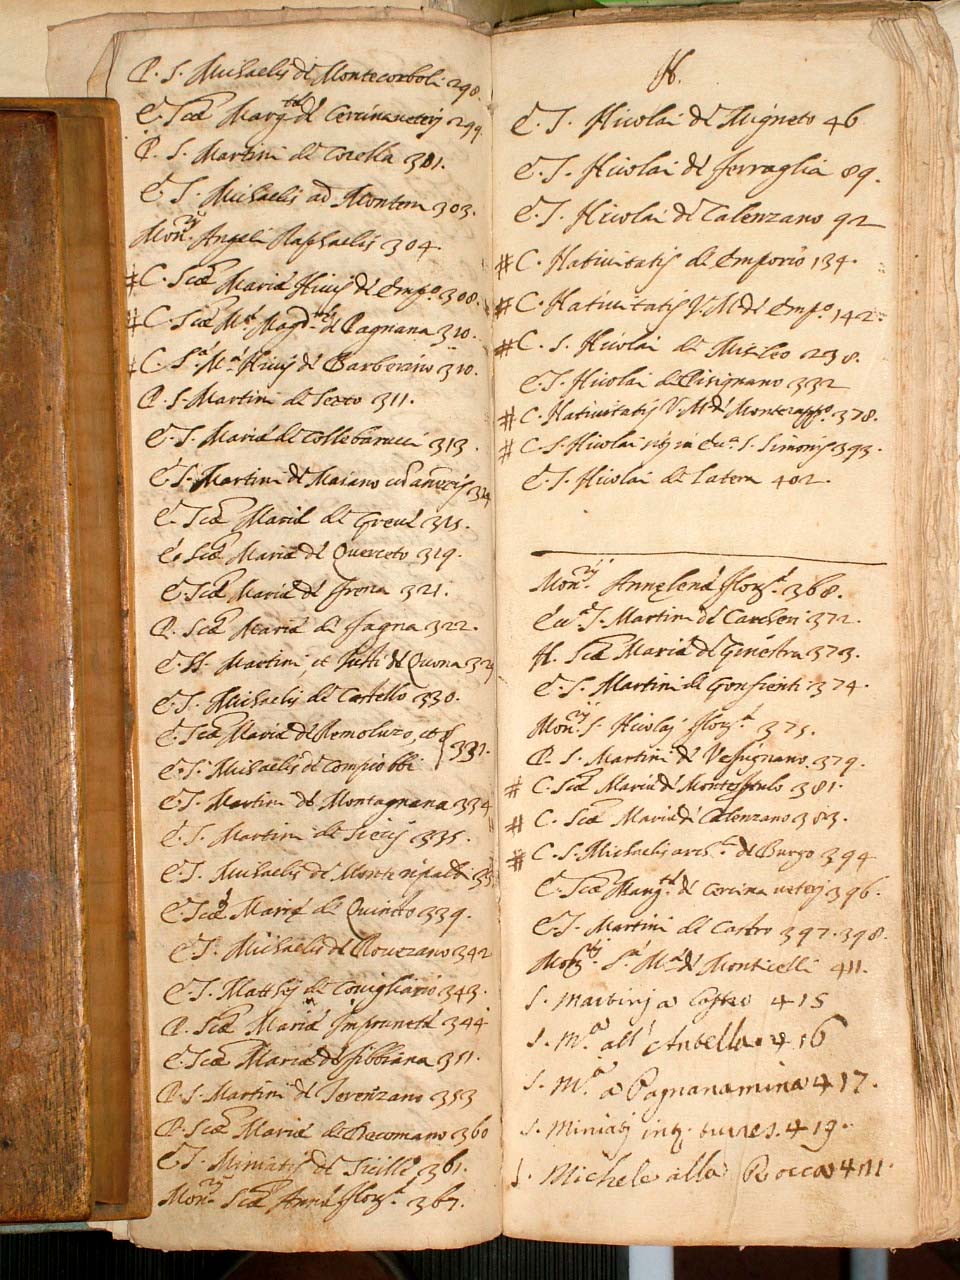 P. S. Michaelis de Montecorboli 298.
E. Scæ Margtæ de Cercinaveteri 299
P. S. Martini de Corella 301.
E. S. Michaelis ad Montem 303.
Monrij. Angeli Raphaelis 304
# C. Scæ Mariæ Nivis de Emp.o 308.
# C. Scæ Mæ Magdnæ de Pagnana 310.
# C. Sæ Mæ Nivis de Barberino 310.
P. S. Martini de Sexto 311.
E. S. Mariæ de Collebarucci 313.
E. S. Martini de Maiano 324
E. Scæ Mariæ de Greui 315.
E. Scæ Mariæ de Querceto 319.
E. Scæ Mariæ de Frena 321.
P. Scæ Mariæ de Fagna 322.
E. SS. Martini, et Justi de Quona 329
E. S. Michaelis de Castello 330.
E. Scæ Mariæ de Remoluzo, et
E. S. Michaelis de Compiobbi } 331.
E. S. Martini de Montagnana 334
E. S. Martini de Sicci 335.
E. S. Michaelis de Monteripaldi
E. Scæ Mariæ de Quinto 339.
E. S. Michaelis de Rovezzano 342
E. S. Matthij de Conigliario 343.
P. Scæ Mariæ Imprunetæ 344
E. Scæ Mariæ de Fibbiana 351.
P. S. Martini de Serenzano 353
P. Scæ Mariæ de Dacomano 360
E. S. Miniatis de Sicille 361.
Monrij. Scæ Annæ Floræ. 367.
N.
E. S. Nicolai de Migneto 46
E. S. Nicolai de Ferraglia 89.
E. S. Nicolai de Calenzano 92
# C. Nativitatis de Emporio 134.
# C. Nativitatis V. M. de Emp.o 142.
# C. S. Nicolai de Mitileo 238.
E. S. Nicolai de Pisignano 332
# C. Nativitatis V. M. de Monterapp.o 378.
# C. S. Nicolai in Cu.a S. Simonis 393.
E. S. Nicolai de Latera 402.
Monrij. Annalenæ Floræ. 368.
Cuæ S. Martini de Carcheri 372.
H. Scæ Mariæ de Ginestra 373.
E. S. Martini de Gonfienti 374.
Monrij S. Nicolaj Floræ. 375.
P. S. Martini de Vespignano 379.
# C. Scæ Mariæ de Montespitulo 381.
# C. Scæ Mariæ de Calenzano 383.
# C. S. Michaelis archli de Burgo 394
E. Scæ Margtæ de Cercina veteri 396.
E. S. Martini de Castro 397. 398.
Monrij. Sæ Mæ de Monticelli 411.
S. Martinj a Castro 415
S. M.a all' Antella 416
S. M.a a Pagnanamina 417.
S. Miniatj intr. turres. 419.
S. Michele alla Rocca 411